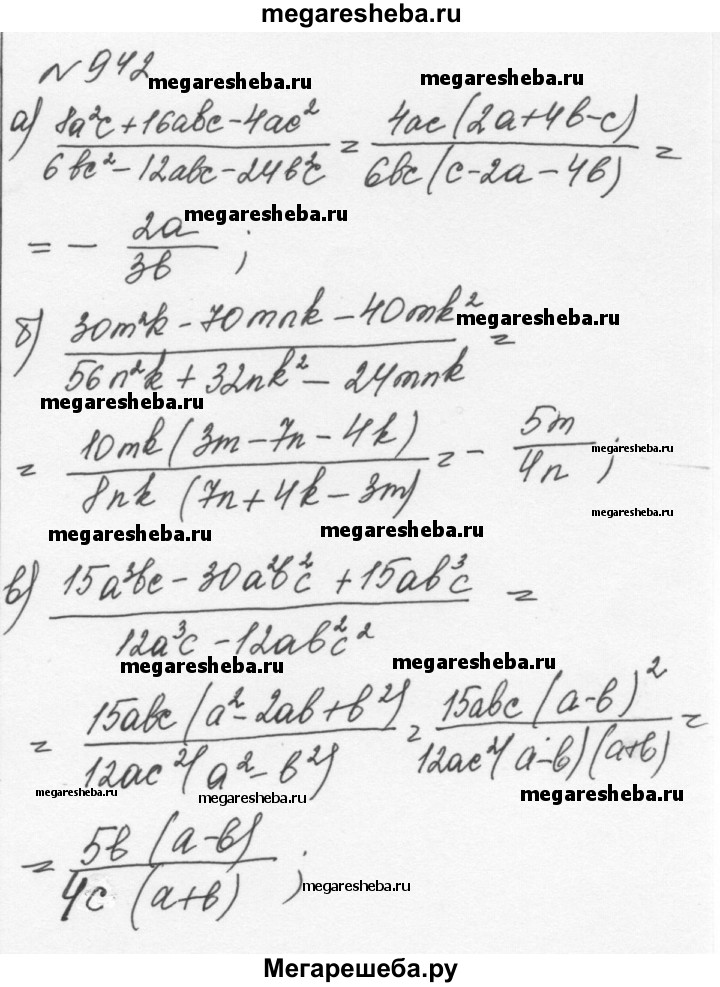 megaresheba.ru
№ 942
megaresheba.ru megaresheba.ru
а) (8a²c + 16abc - 4ac²)/(6bc² - 12abc - 24b²c) = 4ac(2a+4b-c)/6bc(c-2a-4b) =
megaresheba.ru
= - 2a/3b ;
б) (30m²k - 70mnk - 40mk²)/(56n²k + 32nk² - 24mnk) =
megaresheba.ru
megaresheba.ru
= 10mk(3m-7n-4k)/8nk(7n+4k-3m) = - 5m/4n ;
megaresheba.ru
megaresheba.ru
megaresheba.ru megaresheba.ru
в) (15a³bc - 30a²b²c² + 15ab³c)/(12a³c - 12ab²c²) =
megaresheba.ru megaresheba.ru
= 15abc(a²-2ab+b²)/12ac²(a²-b²) = 15abc(a-b)²/12ac²(a-b)(a+b) =
megaresheba.ru megaresheba.ru megaresheba.ru
= 5b(a-b)/4c(a+b) ;
megaresheba.ru
Мегарешеба.ру